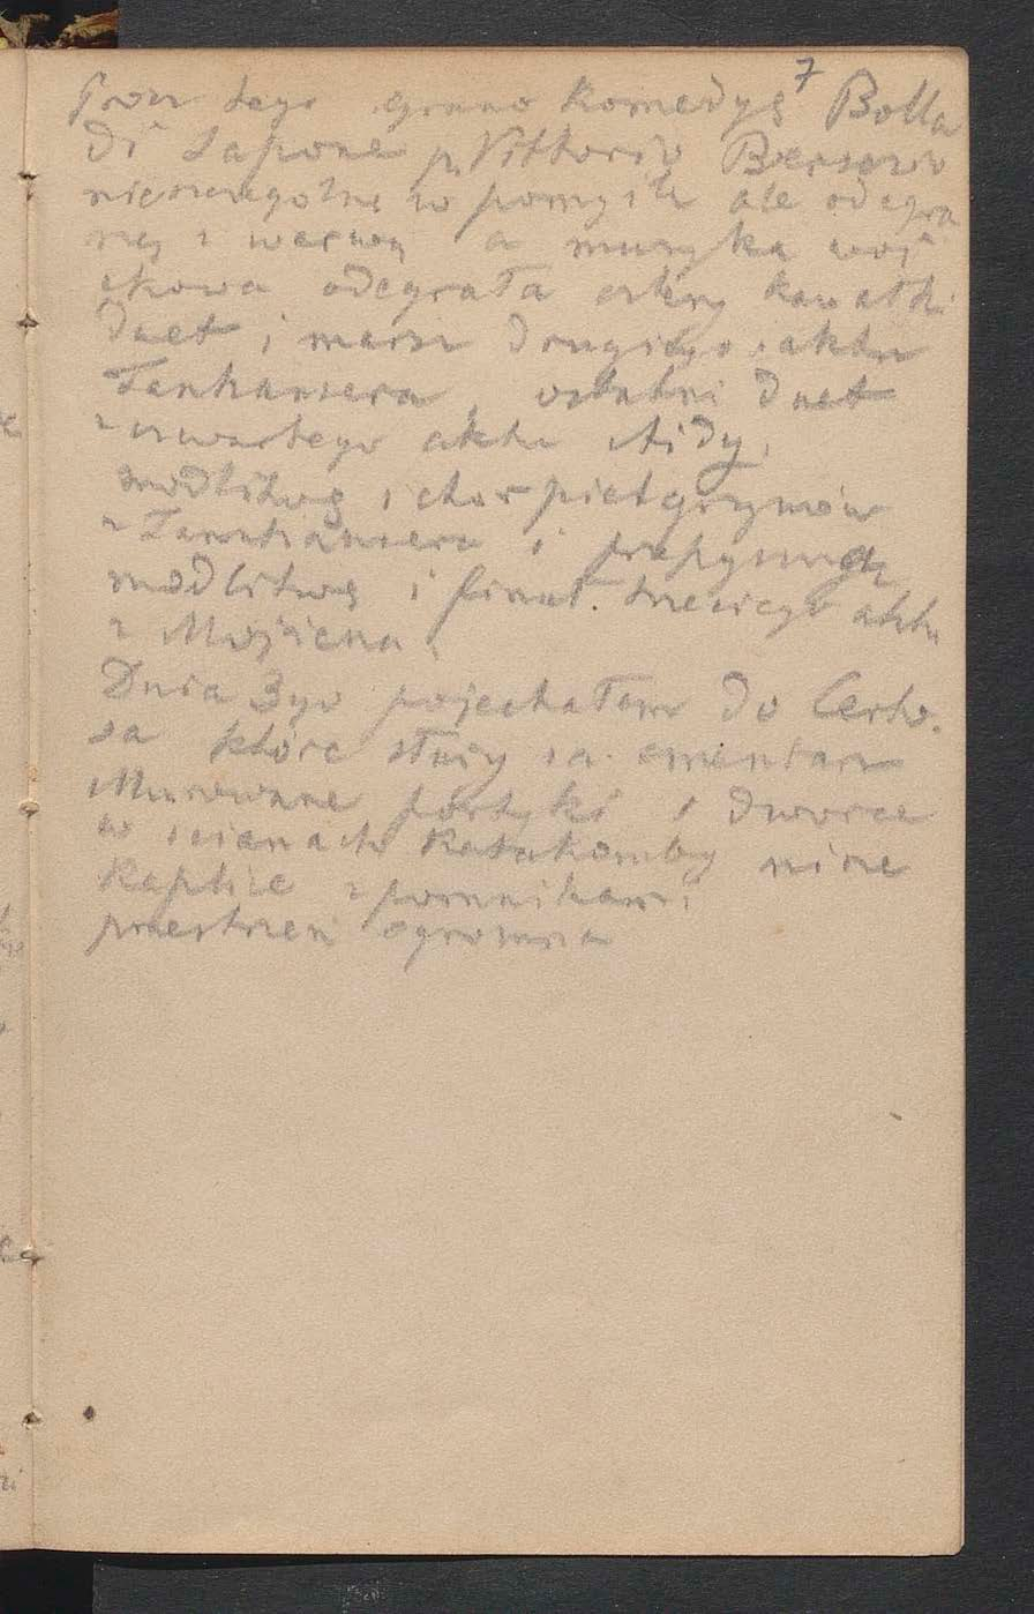 7
Procz tego grano komedyę Bolla
di Sapone p. Vittorio Bersezio
nieszczególnę w pomyśle ale odegra
nej z werwą a muzyka woj
skowa odegrała cztery kawałki
duet i marsz drugiego aktu
Tanhausera, ostatni duet
z czwartego aktu Aidy,
modlitwę i chor pielgrzymów
z Tanhausera i przepyszną
modlitwę i finał trzeciego aktu
z Mojżesza.
Dnia 3go pojechałem do Certo.
sa które służy za cmentarz
Murowane portyki i dworce
w scianach katakomby niże
kaplice z pomnikami
przestrzeń ogromna